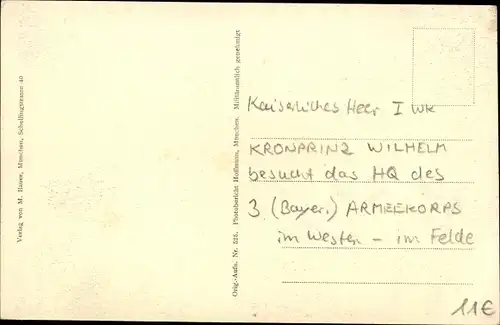 Verlag von M. Hauer, München, Schellingstrasse 40
Orig.-Aufn. Nr. 225. Photobericht Hoffmann, München. Militäramtlich genehmigt
Kaiserliches Heer I WK
KRONPRINZ WILHELM
besucht das HQ des
3 (Bayer.) ARMEEKORPS
im Westen - im Felde
11€